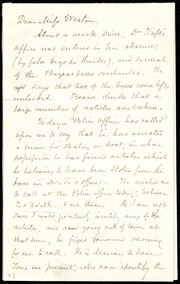 Dear Miss Weston,
About a week since, Dr Taft's
Office was entered in his absence,
(by false keys he thinks), and several
of the Bazaar boxes ransacked. He
says that two of the boxes were
unlocked. I
large number of articles was taken.
Today a Police Officer has called
upon me to say that he has arrested
a man for stealing a coat, in whose
possession he has found articles which
he believes to have been stolen from the
boxes in Dr. T's office. He wished me
to call at the Police Office today, between
2 o'clock, & see them. As I am not
sure I could positively identify any of the
articles, and am going out of town at
that time, he fixed tomorrow morning
for me to call. He is anxious to have
some one present, who can identify the